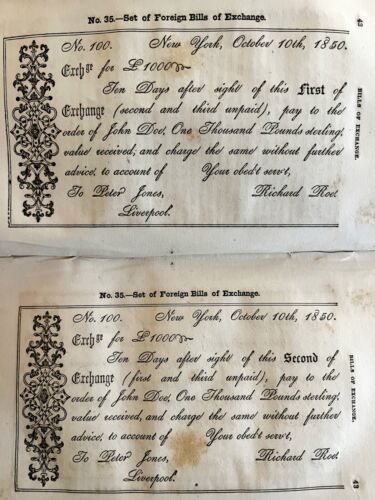 No. 35.—Set of Foreign Bills of Exchange.
No. 100. New York, October 10th, 1850.
Exchge for £1000
Ten Days after sight of this First of
Exchange (second and third unpaid), pay to the
order of John Doe, One Thousand Pounds sterling,
value received; and charge the same without further
advice, to account of Your obedt servt,
To Peter Jones, Richard Roe.
Liverpool.
42
BILLS OF EXCHANGE.
No. 35.—Set of Foreign Bills of Exchange.
No. 100. New York, October 10th, 1850.
Exchge for £1000
Ten Days after sight of this Second of
Exchange (first and third unpaid), pay to the
order of John Doe, One Thousand Pounds sterling,
value received, and charge the same without further
advice, to account of Your obedt servt,
To Peter Jones, Richard Roe.
Liverpool.
BILLS OF EXCHANGE.
43